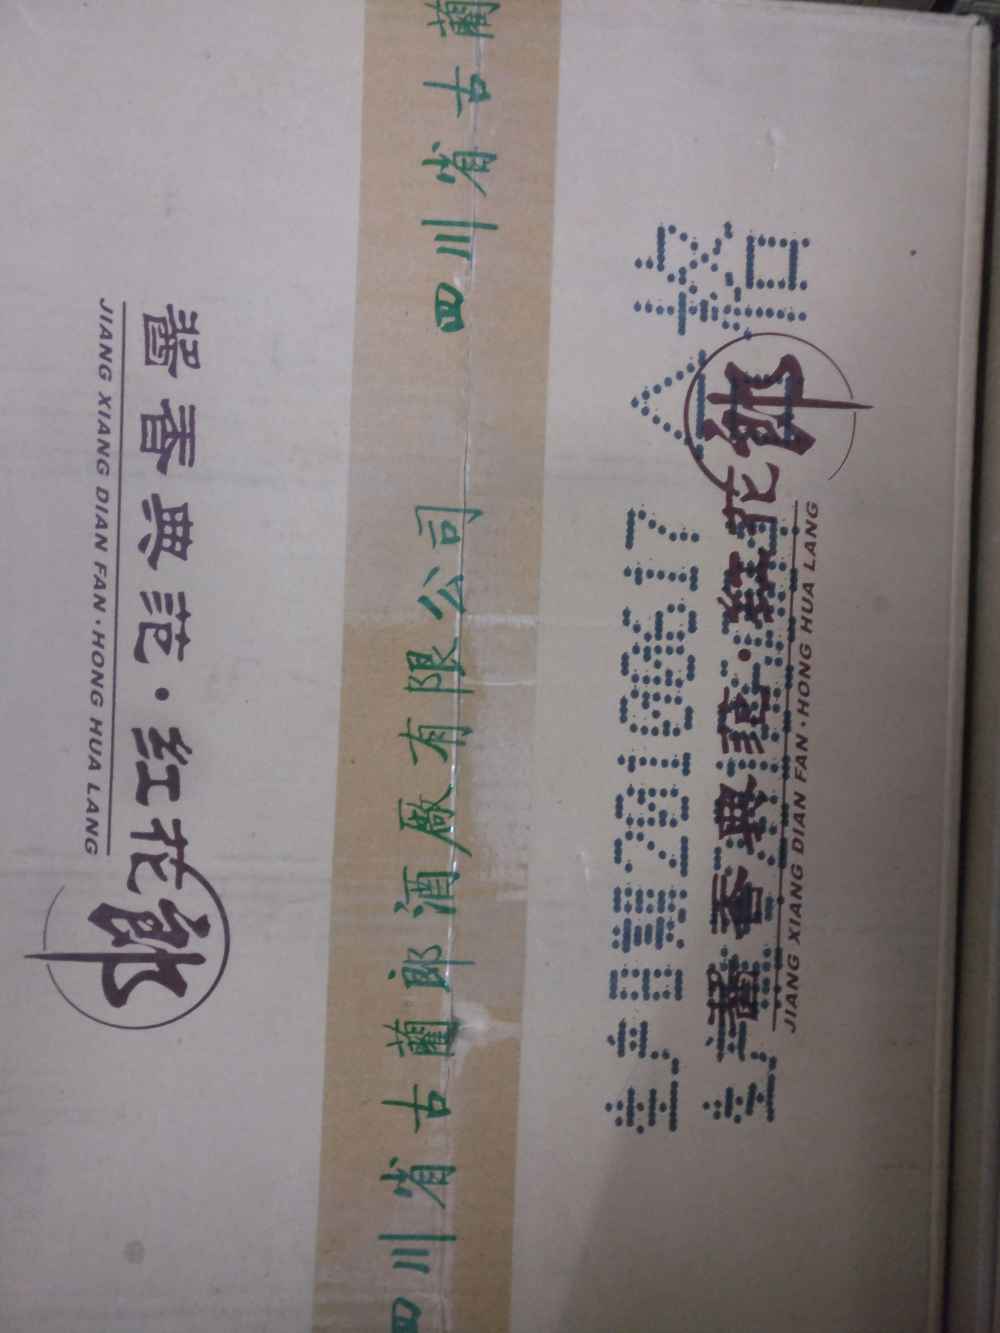 醬香典范·红花郎
JIANG XIANG DIAN FAN·HONG HUA LANG
四川省古藺郎酒厰有限公司
四川省古藺
生产日期20100617 合格
醬香典范·红花郎
JIANG XIANG DIAN FAN·HONG HUA LANG